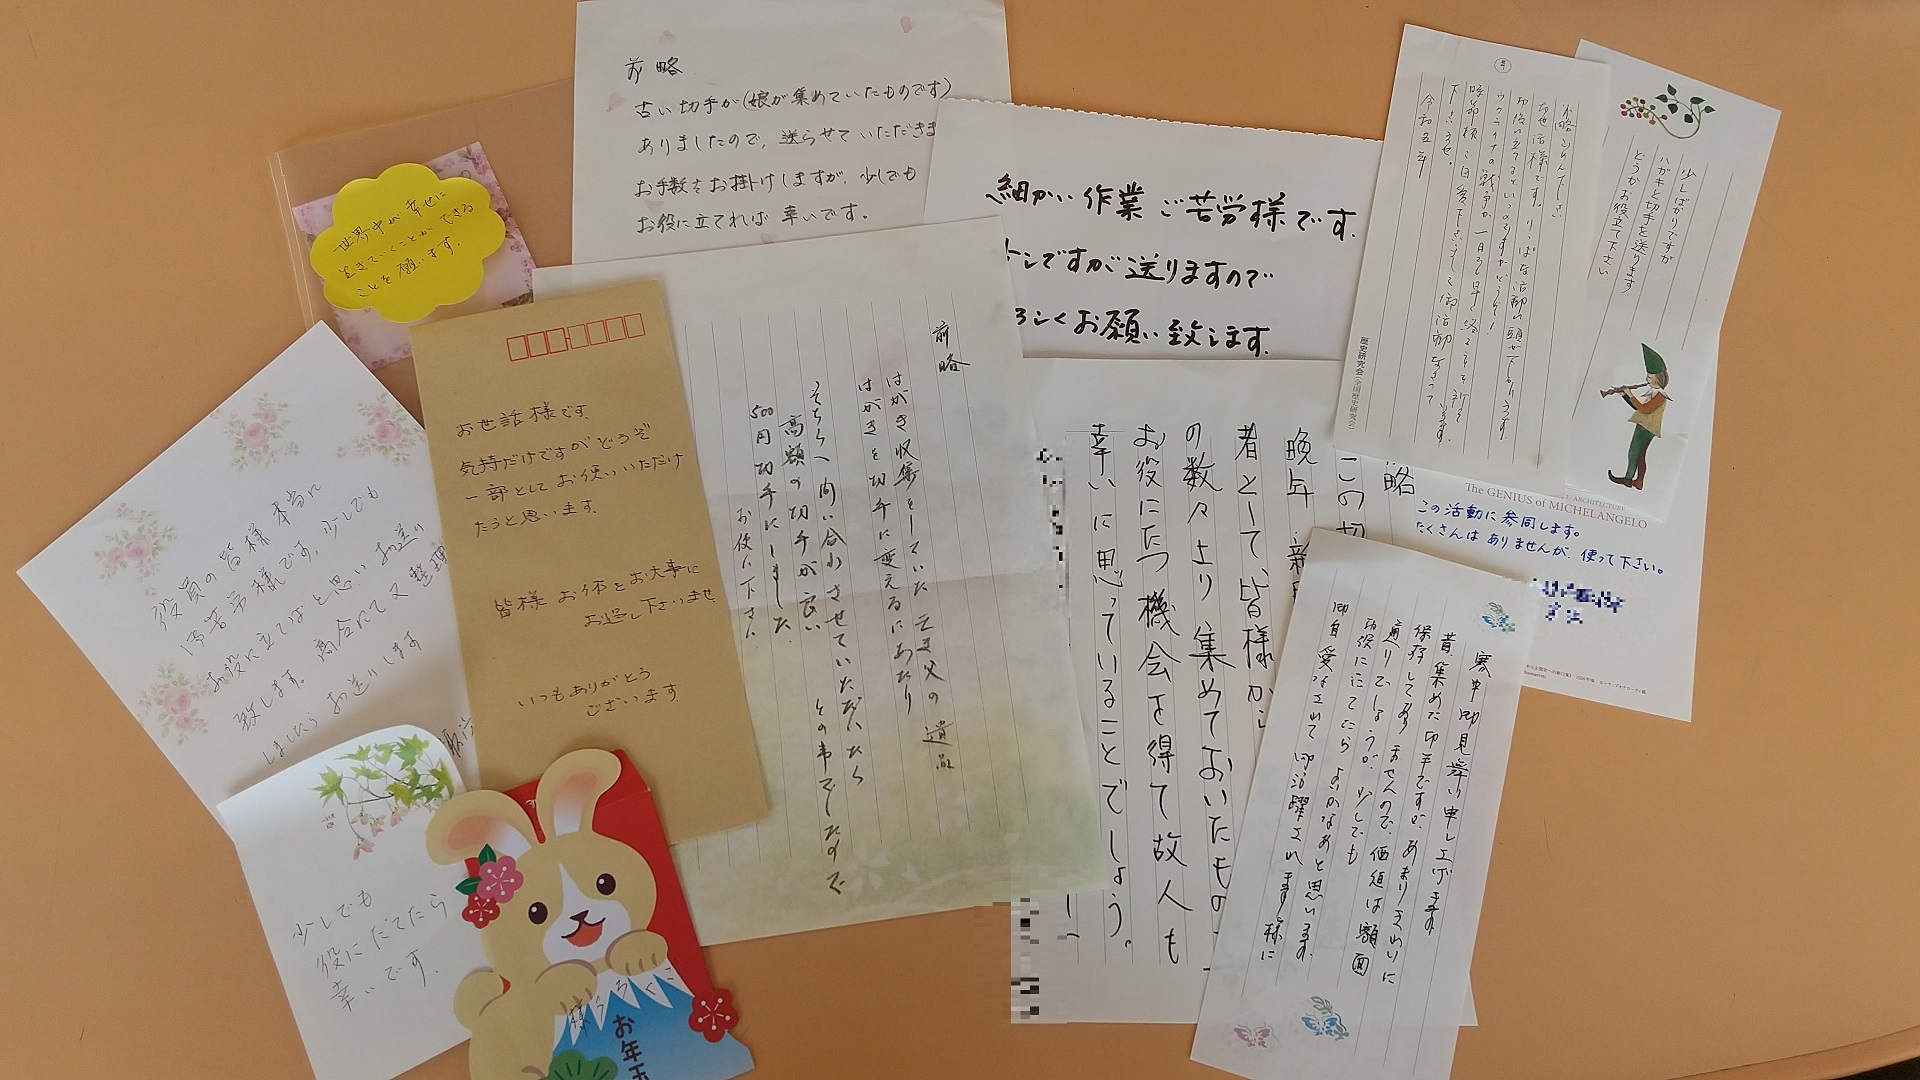 前略
古い切手が(娘が集めていたものです)
ありましたので、送らせていただきま
お手数をお掛けしますが、少しでも
お役に立てれば幸いです。
世界中が幸せに
生きていくことができる
ことを願います。
細かい作業ご苦労様です。
ですがご送りますので
ろしくお願い致します。
少しばかりですが
ハガキと切手を送ります
どうかお役立て下さい
お世話様です。
ウクライナの戦争が一日も早く終ることを祈って
令和五年
歴史研究会(全国歴史研究会)
The GENIUS of MICHELANGELO
この活動に参同します。
たくさんはありませんが、使って下さい。
お世話様です。
気持だけですがどうぞ
一部としてお使いいただけ
たらと思います。
皆様お体をお大事に
お過し下さいませ
いつもありがとう
ございます。
前略
はがき収集をしていた亡き父の遺品
はがきを切手に変えるにあたり
そちらへ問い合わさせていただいたら
高額の切手が良いとの事でしたので
500円切手にしました。
お使い下さい
略
この切
晩年、新
者として、皆様から
の数々より集めておいたもの
お役にたつ機会を得て故人も
幸いに思っていることでしょう。
役員の皆様本当に
御苦労様です。少しでも
お役に立てばと思いお送り
致します。
しましたらお送りします
少しでも
役にたてたら
幸いです。
ごくろう様
お年玉
寒中御見舞い申し上げます
昔、集めた切手ですが、あまりきれいに
保存してありませんので、価値は額面
通りでしょうが、少しでも
お役にたてたらよいかなあと思います。
御自愛なされて御活躍されます様に